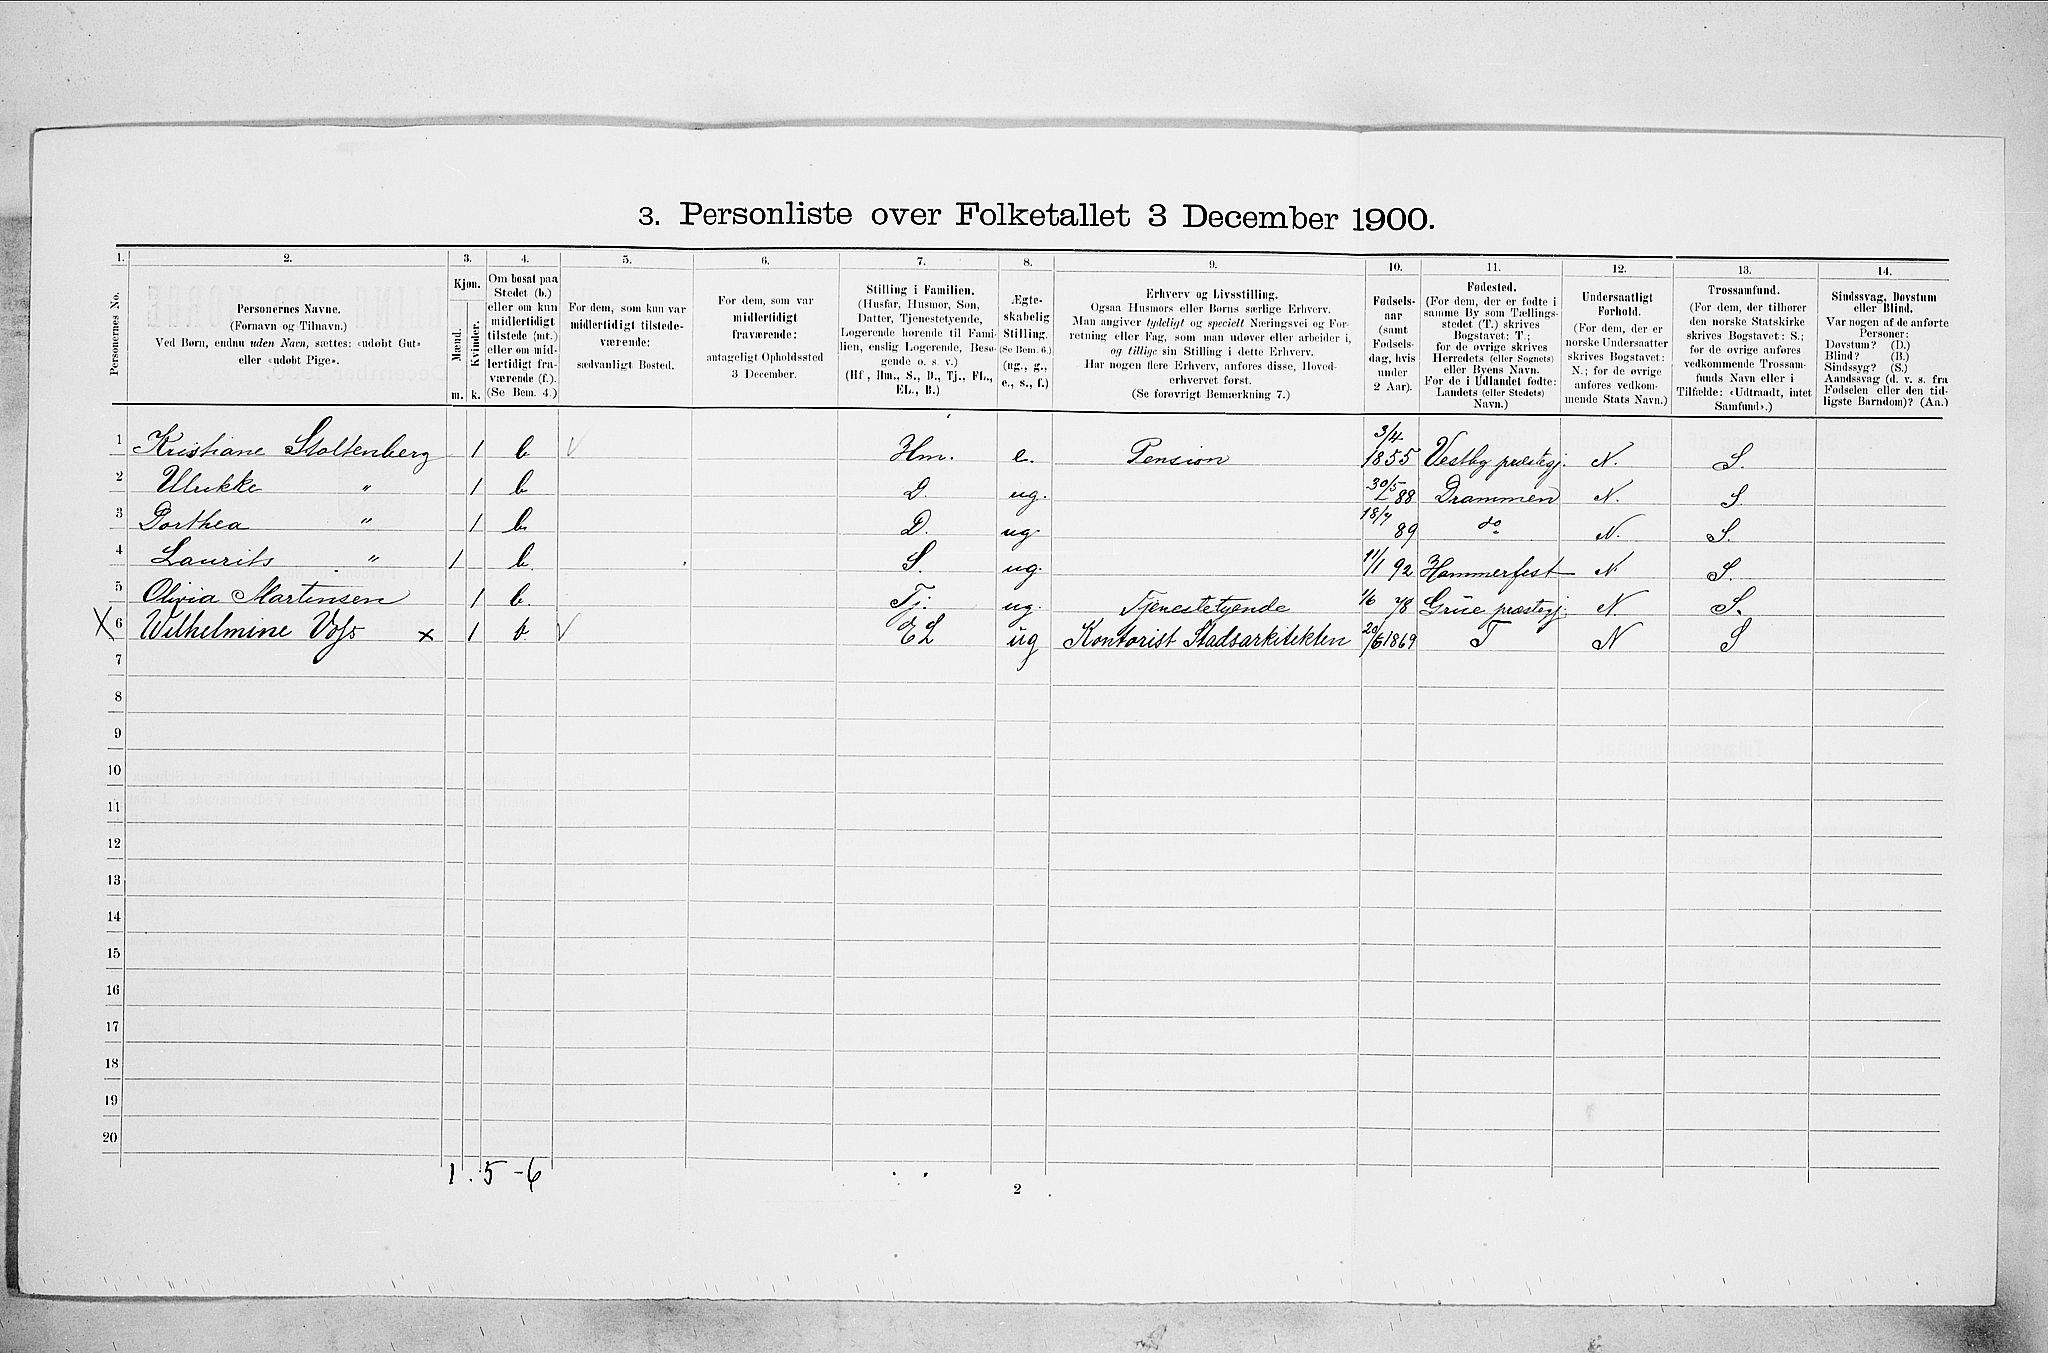 3. Personliste over Folketallet 3 December 1900.
1. 2. 3. 4. 5. 6. 7. 8. 9. 10. 11. 12. 13. 14.
Personernes No.
Personernes Navne.
(Fornavn og Tilnavn.)
Ved Børn, endnu uden Navn, sættes: «udøbt Gut»
eller «udøbt Pige».
Kjøn.
Mænd. Kvinder.
m. k.
Om bosat paa
Stedet (b.)
eller om kun
midlertidigt
tilstede (mt.)
eller om mid-
lertidigt fra-
værende (f.)
(Se Bem. 4.)
For dem, som kun var
midlertidigt tilstede-
værende:
sædvanligt Bosted.
For dem, som var
midlertidigt
fraværende:
antageligt Opholdssted
3 December.
Stilling i Familien.
(Husfar, Husmor, Søn,
Datter, Tjenestetyende,
Logerende hørende til Fami-
lien, enslig Logerende, Besø-
gende o. s. v.)
(Hf., Hm., S., D., Tj., FL.,
EL., B.)
Ægte-
skabelig
Stilling.
(Se Bem. 6.)
(ug., g.,
e., s., f.)
Erhverv og Livsstilling.
Ogsaa Husmors eller Børns særlige Erhverv.
Man angiver tydeligt og specielt Næringsvei og For-
retning eller Fag, som man udøver eller arbeider i,
og tillige sin Stilling i dette Erhverv.
Har nogen flere Erhverv, anføres disse, Hoved-
erhvervet først.
(Se forøvrigt Bemærkning 7.)
Fødsels-
aar
(samt
Fødsels-
dag, hvis
under
2 Aar).
Fødested.
(For dem, der er fødte i
samme By som Tællings-
stedet (T.) skrives
Bogstavet: T.;
for de øvrige skrives
Herredets (eller Sognets)
eller Byens Navn.
For de i Udlandet fødte:
Landets (eller Stedets)
Navn.)
Undersaatligt
Forhold.
(For dem, der er
norske Undersaatter
skrives Bogstavet:
N.; for de øvrige
anføres vedkom-
mende Stats Navn.)
Trossamfund.
(For dem, der tilhører
den norske Statskirke
skrives Bogstavet: S.;
for de øvrige anføres
vedkommende Trossam-
funds Navn eller i
Tilfælde: «Udtraadt, intet
Samfund».)
Sindssvag, Døvstum
eller Blind.
Var nogen af de anførte
Personer:
Døvstum? (D.)
Blind? (B.)
Sindssyg? (S.)
Aandssvag (d. v. s. fra
Fødselen eller den tid-
ligste Barndom)? (Aa.)
1 Kristiane Stoltenberg 1 b Hm. e. Pension 3/4 1855 Vestby præstegj. N. S.
2 Ulrikke " 1 b D. ug. 30/5 88 Drammen N. S.
3 Dorthea " 1 b. D. ug. 18/7 89 do N. S.
4 Laurits " 1 b. S. ug. 11/1 92 Hammerfest N. S.
5 Olivia Martensen 1 b. Tj. ug. Tjenestetyende 1/6 78 Grue præstegj. N. S.
X 6 Wilhelmine Voss x 1 b EL ug Kontorist Stadsarkitekten 20/6 1869 T N S
7
8
9
10
11
12
13
14
15
16
17
18
19
20
1. 5 - 6
2